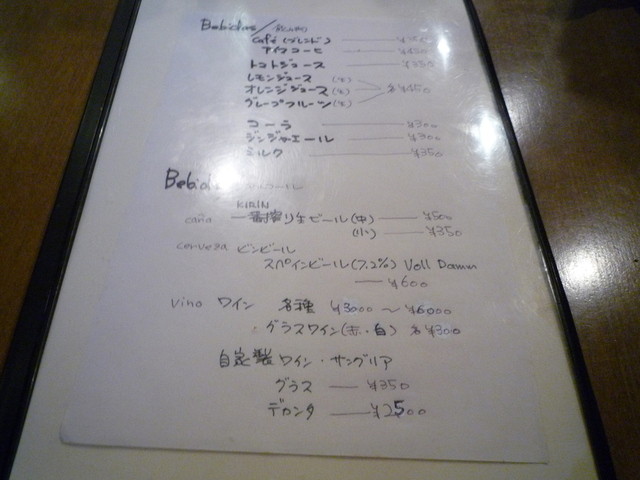 Bebidas/
Café (ブレンド)
アイスコーヒ ¥450
トマトジュース ¥350
レモンジュース (生)
オレンジジュース (生) 各¥450
グレープフルーツ (生)
コーラ ¥300
ジンジャエール ¥300
ミルク ¥350
KIRIN
caña 一番搾り生ビール(中) ¥500
(小) ¥350
cerveza ビンビール
スペインビール(7.2%) Voll Damm
¥600
vino ワイン 各種 ¥3000 ～ ¥6000
グラスワイン(赤・白) 各¥300
自家製ワイン・サングリア
グラス ¥350
デカンタ ¥2500